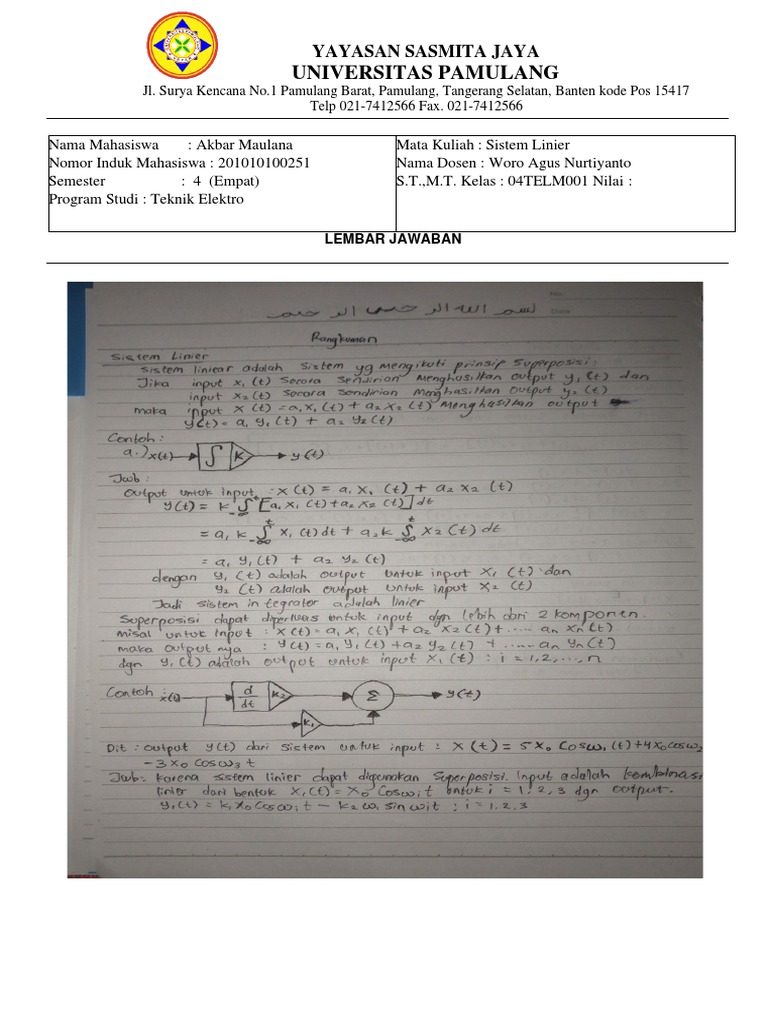 YAYASAN SASMITA JAYA
UNIVERSITAS PAMULANG
Jl. Surya Kencana No.1 Pamulang Barat, Pamulang, Tangerang Selatan, Banten kode Pos 15417
Telp 021-7412566 Fax. 021-7412566
Nama Mahasiswa : Akbar Maulana
Nomor Induk Mahasiswa : 201010100251
Semester : 4 (Empat)
Program Studi : Teknik Elektro
Mata Kuliah : Sistem Linier
Nama Dosen : Woro Agus Nurtiyanto
S.T.,M.T. Kelas : 04TELM001 Nilai :
LEMBAR JAWABAN
بسم الله الرحمن الرحيم
Rangkuman
Sistem Linier
Sistem linear adalah Sistem yg mengikuti prinsip Superposisi:
Jika input x₁ (t) secara sendirian menghasilkan output y₁ (t) dan
input x₂ (t) secara sendirian menghasilkan output y₂ (t)
maka input x (t) = a₁x₁ (t) + a₂ x₂ (t) menghasilkan output
y(t) = a₁ y₁ (t) + a₂ y₂ (t)
Contoh :
a.) x(t) ∫ K y(t)
Jwb :
output untuk input : x (t) = a₁ x₁ (t) + a₂ x₂ (t)
y(t) = k ∫ [a₁ x₁ (t) + a₂ x₂ (t)] dt
= a₁ k ∫ x₁ (t) dt + a₂ k ∫ x₂ (t) dt
= a₁ y₁ (t) + a₂ y₂ (t)
dengan y₁ (t) adalah output untuk input x₁ (t) dan
y₂ (t) adalah output untuk input x₂ (t)
Jadi sistem in tegrator adalah linier
Superposisi dapat diperluas untuk input dgn lebih dari 2 komponen.
misal untuk input : x (t) = a₁ x₁ (t) + a₂ x₂ (t) + .... an xn (t)
maka output nya : y(t) = a₁ y₁ (t) + a₂ y₂ (t) + .... an yn (t)
dgn y₁ (t) adalah output untuk input x₁ (t) : i = 1, 2, ..., n
Contoh : x(t) d/dt k₂ Σ y(t)
k₁
Dit : output y(t) dari sistem untuk input : x (t) = 5 x₀ cos ω₁ (t) + 4 x₀ cos ω₂
- 3 x₀ cos ω₃ t
Jwb : karena sstem linier dapat digunakan superposisi. Input adalah kombinasi
linier dari bentuk x₁ (t) = x₀ cos ωᵢ t untuk i = 1, 2, 3 dgn output.
y₁ (t) = k₁ x₀ cos ωᵢ t - k₂ ωᵢ sin ωit : i = 1, 2, 3